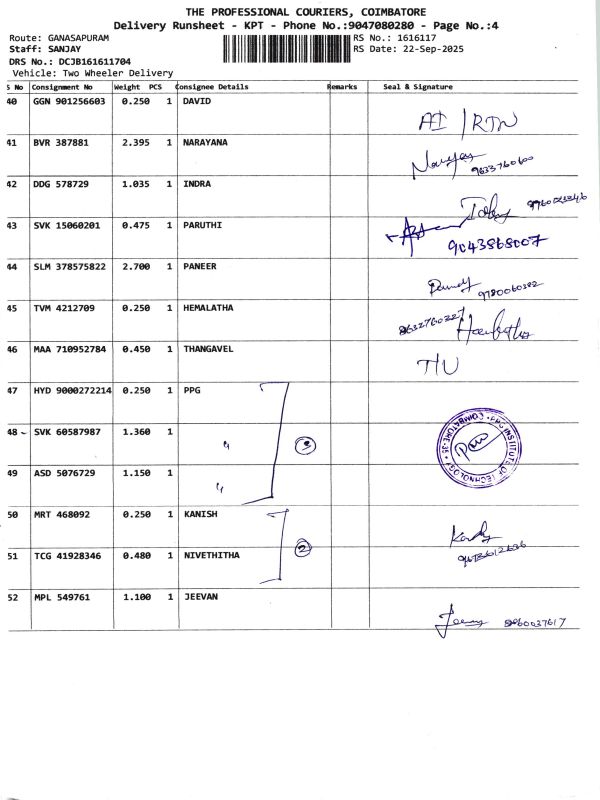 THE PROFESSIONAL COURIERS, COIMBATORE
Delivery Runsheet - KPT - Phone No.:9047080280 - Page No.:4
Route: GANASAPURAM
RS No.: 1616117
Staff: SANJAY
RS Date: 22-Sep-2025
DRS No.: DCJB161611704
Vehicle: Two Wheeler Delivery
S No Consignment No Weight PCS Consignee Details Remarks Seal & Signature
40 GGN 901256603 0.250 1 DAVID
AI / RTN
41 BVR 387881 2.395 1 NARAYANA
9633760600
42 DDG 578729 1.035 1 INDRA
43 SVK 15060201 0.475 1 PARUTHI
9043868007
44 SLM 378575822 2.700 1 PANEER
45 TVM 4212709 0.250 1 HEMALATHA
46 MAA 710952784 0.450 1 THANGAVEL
T/U
47 HYD 9000272214 0.250 1 PPG
48 SVK 60587987 1.360 1
" 3
PPG INSTITUTE OF TECHNOLOGY COIMBATORE-35
49 ASD 5076729 1.150 1
"
50 MRT 468092 0.250 1 KANISH
2
51 TCG 41928346 0.480 1 NIVETHITHA
52 MPL 549761 1.100 1 JEEVAN